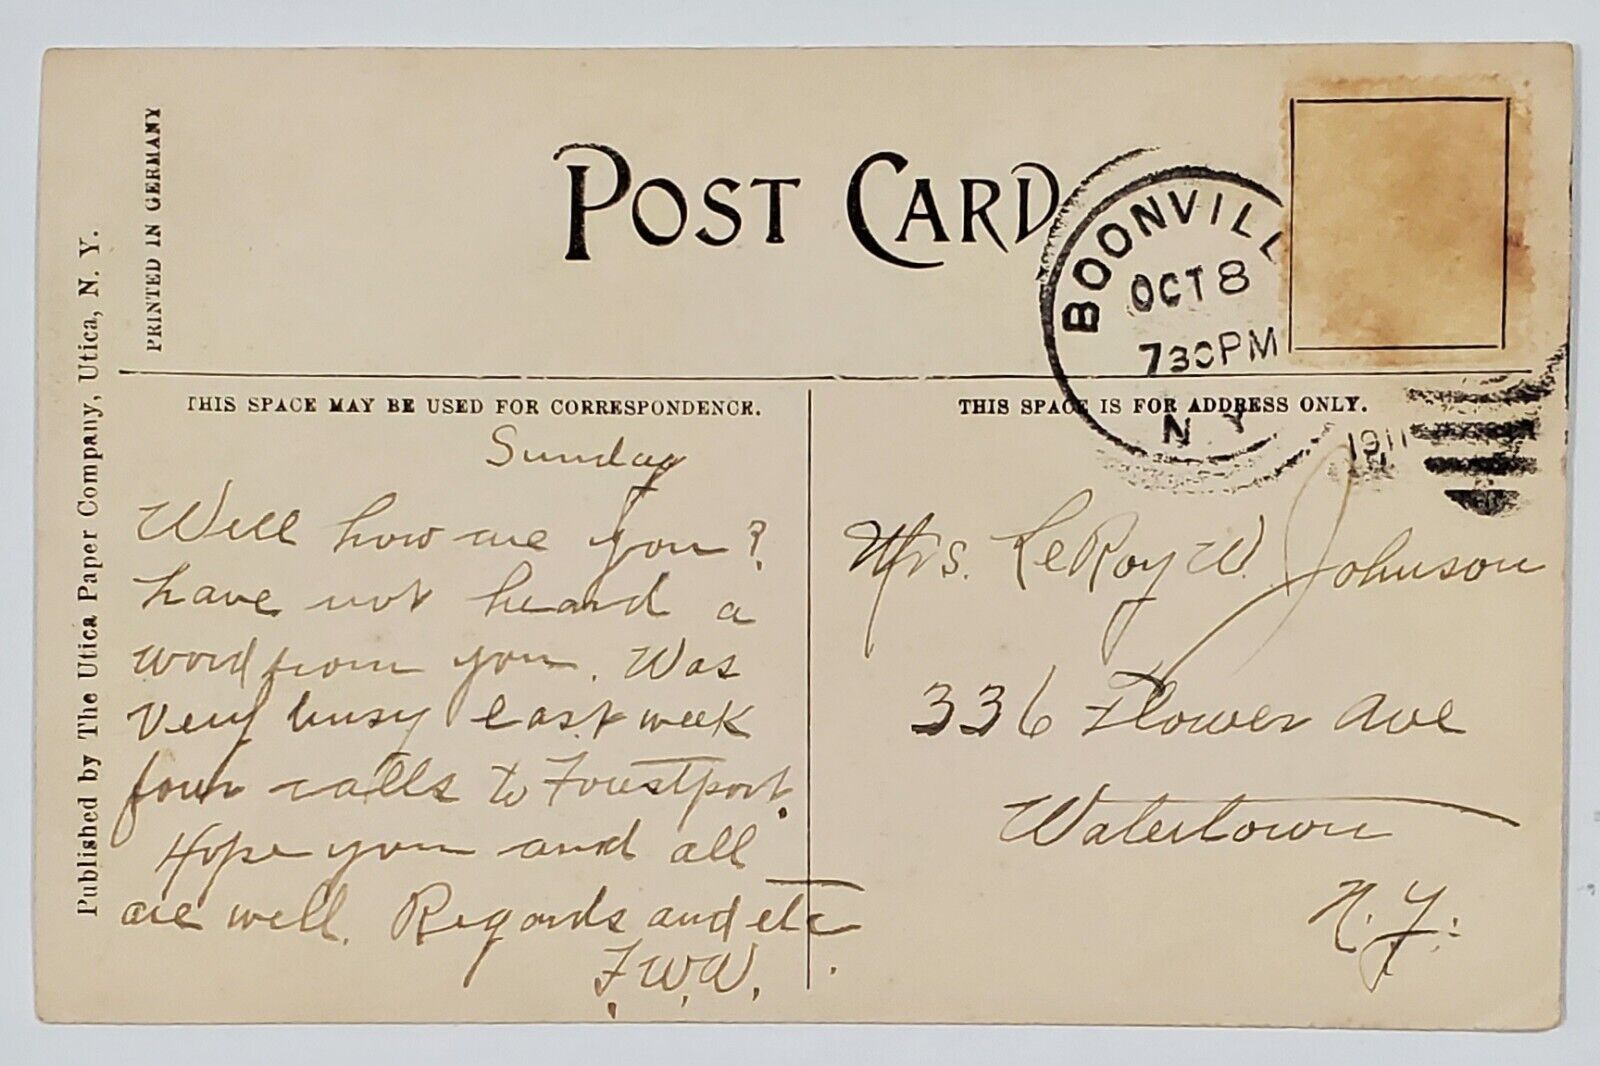 PRINTED IN GERMANY
Published by The Utica Paper Company, Utica, N. Y.
POST CARD
BOONVILL
OCT 8
730PM
N Y
1911
THIS SPACE MAY BE USED FOR CORRESPONDENCE.
Sunday
Well how are you?
have not heard a
word from you. Was
Very busy last week
four calls to Forestport.
Hope you and all
are well. Regards and etc.
F.W.W.
THIS SPACE IS FOR ADDRESS ONLY.
Mrs. LeRoy W. Johnson
336 Flower Ave
Watertown
N.Y.